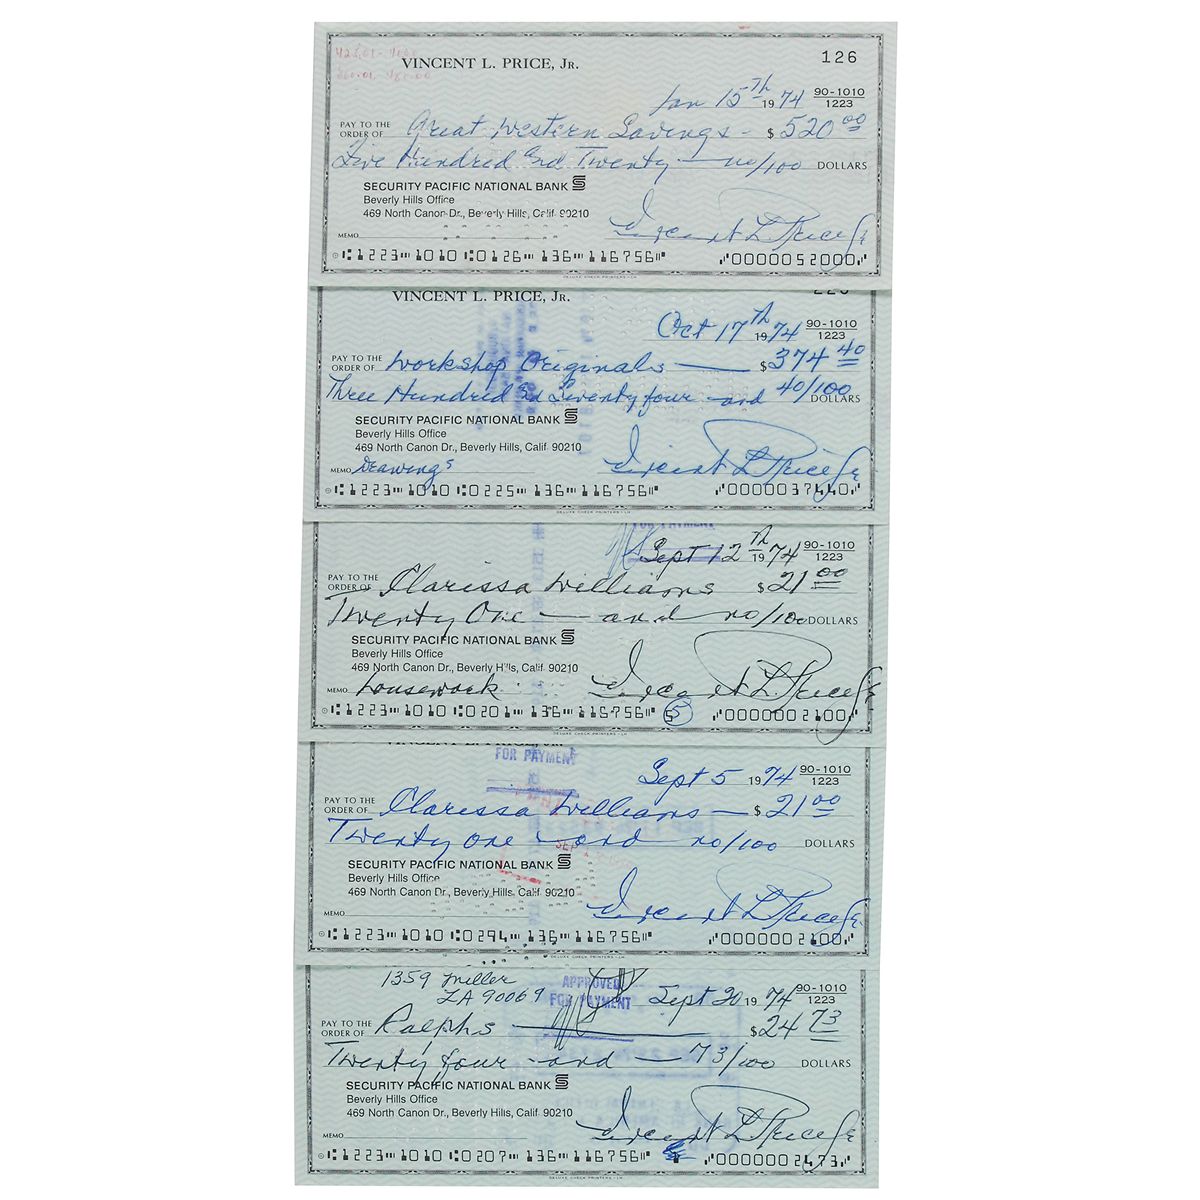 VINCENT L. PRICE, JR.
126
Jan 15th 1974 90-1010
1223
PAY TO THE
ORDER OF Great Western Savings - $ 520 00
Five Hundred and Twenty — no/100 DOLLARS
SECURITY PACIFIC NATIONAL BANK
Beverly Hills Office
469 North Canon Dr., Beverly Hills, Calif. 90210
Vincent L Price Jr
MEMO
1223 1010 0126 136 116756 0000052000
DELUXE CHECK PRINTERS - LH
VINCENT L. PRICE, JR.
Oct 17th 1974 90-1010
1223
PAY TO THE
ORDER OF Workshop Originals — $ 374 40
Three Hundred and Seventy four - and 40/100 DOLLARS
SECURITY PACIFIC NATIONAL BANK
Beverly Hills Office
469 North Canon Dr., Beverly Hills, Calif. 90210
MEMO Drawings Vincent L Price Jr
1223 1010 0225 136 116756 0000037440
DELUXE CHECK PRINTERS - LH
FOR PAYMENT
Sept 12th 1974 90-1010
1223
PAY TO THE
ORDER OF Clarissa Williams $ 21 00
Twenty One — and no/100 DOLLARS
SECURITY PACIFIC NATIONAL BANK
Beverly Hills Office
469 North Canon Dr., Beverly Hills, Calif. 90210
MEMO housework Vincent L. Price Jr
1223 1010 0201 136 116756 5 0000002100
DELUXE CHECK PRINTERS - LH
VINCENT L. PRICE, JR.
FOR PAYMENT
Sept 5 1974 90-1010
1223
PAY TO THE
ORDER OF Clarissa Williams — $ 21 00
Twenty one — and no/100 DOLLARS
SECURITY PACIFIC NATIONAL BANK
Beverly Hills Office
469 North Canon Dr., Beverly Hills, Calif. 90210
Vincent L Price Jr
MEMO
1223 1010 0294 136 116756 0000002100
DELUXE CHECK PRINTERS - LH
1359 Miller
LA 90069
APPROVED
FOR PAYMENT
Sept 20 1974 90-1010
1223
PAY TO THE
ORDER OF Ralphs — $ 24 73
Twenty four - and — 73/100 DOLLARS
SECURITY PACIFIC NATIONAL BANK
Beverly Hills Office
469 North Canon Dr., Beverly Hills, Calif. 90210
Vincent L Price Jr
MEMO
1223 1010 0207 136 116756 0000002473
DELUXE CHECK PRINTERS - LH